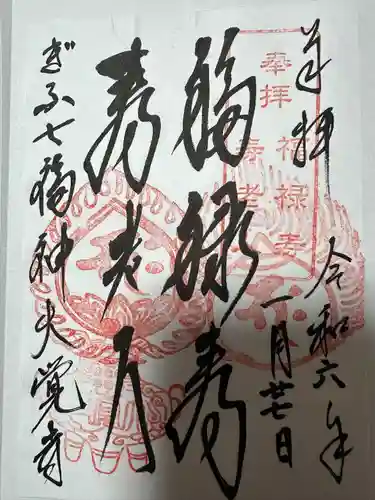 奉拝
令和六年
一月廿七日
福禄寿
寿老人
ぎふ七福神大覚寺
奉拝
福禄寿
寿老